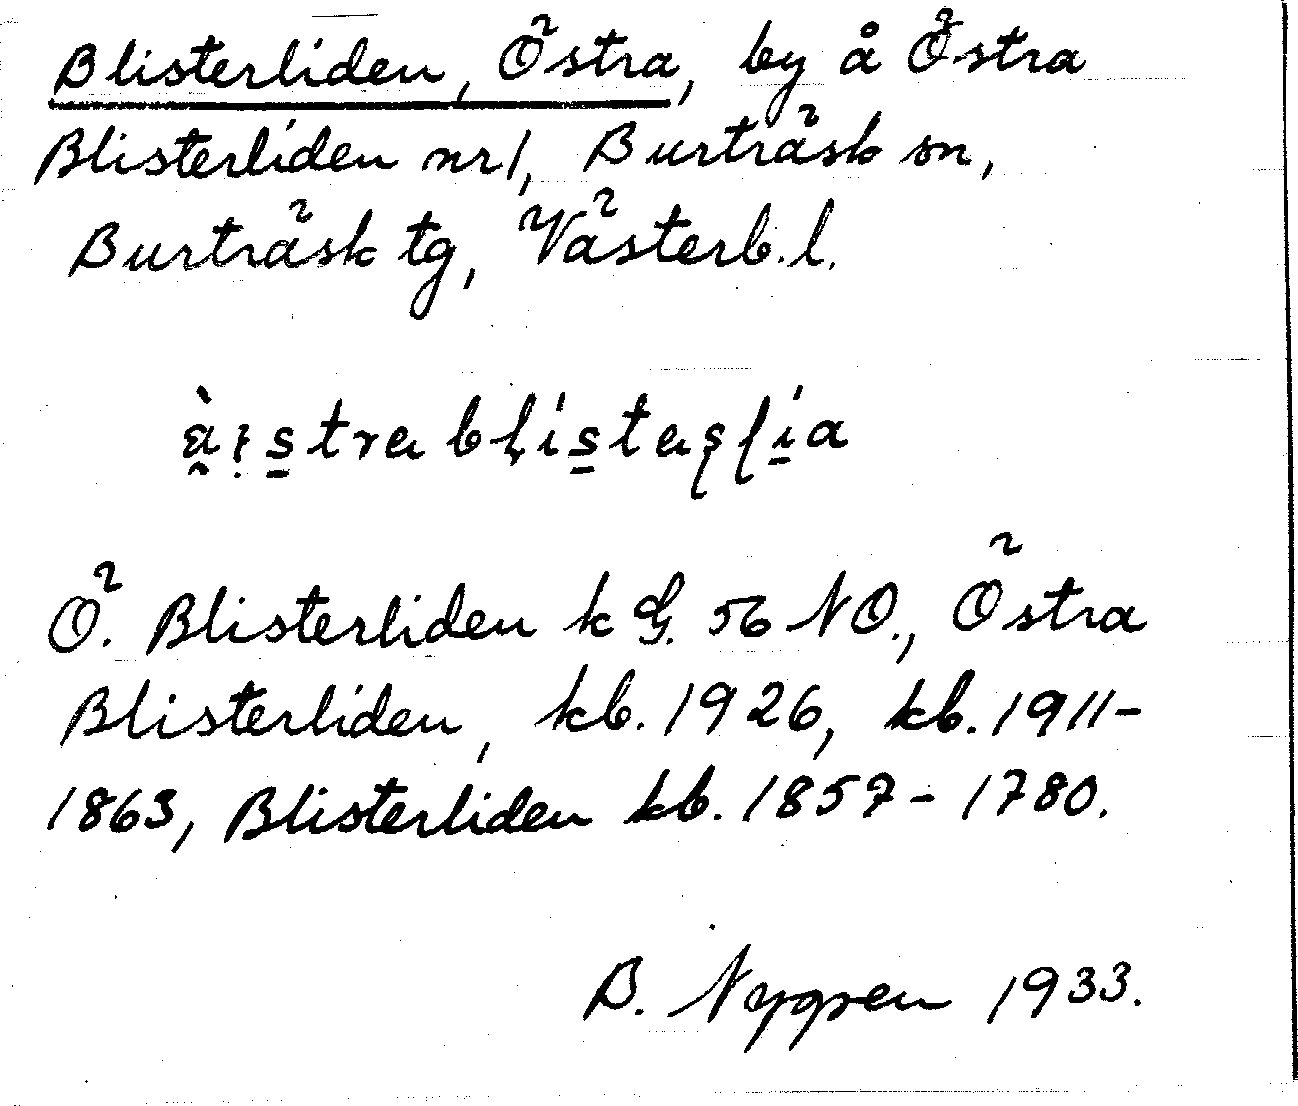 Blisterliden, Östra, by å Östra
Blisterliden nr 1, Burträsk sn,
Burträsk tg, Västerb. l.
Ö. Blisterliden k G. 56 NO., Östra
Blisterliden, kb. 1926, kb. 1911-
1863, Blisterliden kb. 1857-1780.
B. Nygren 1933.